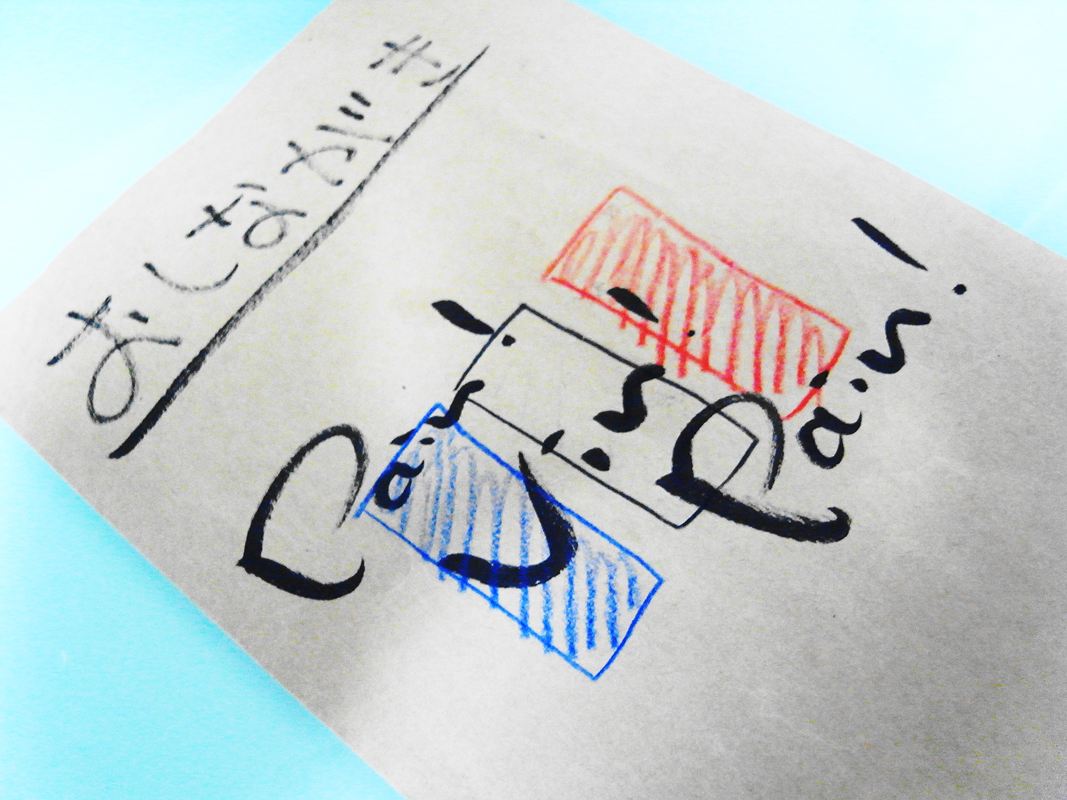 おしながき
Pain!
Vin!
Pain!